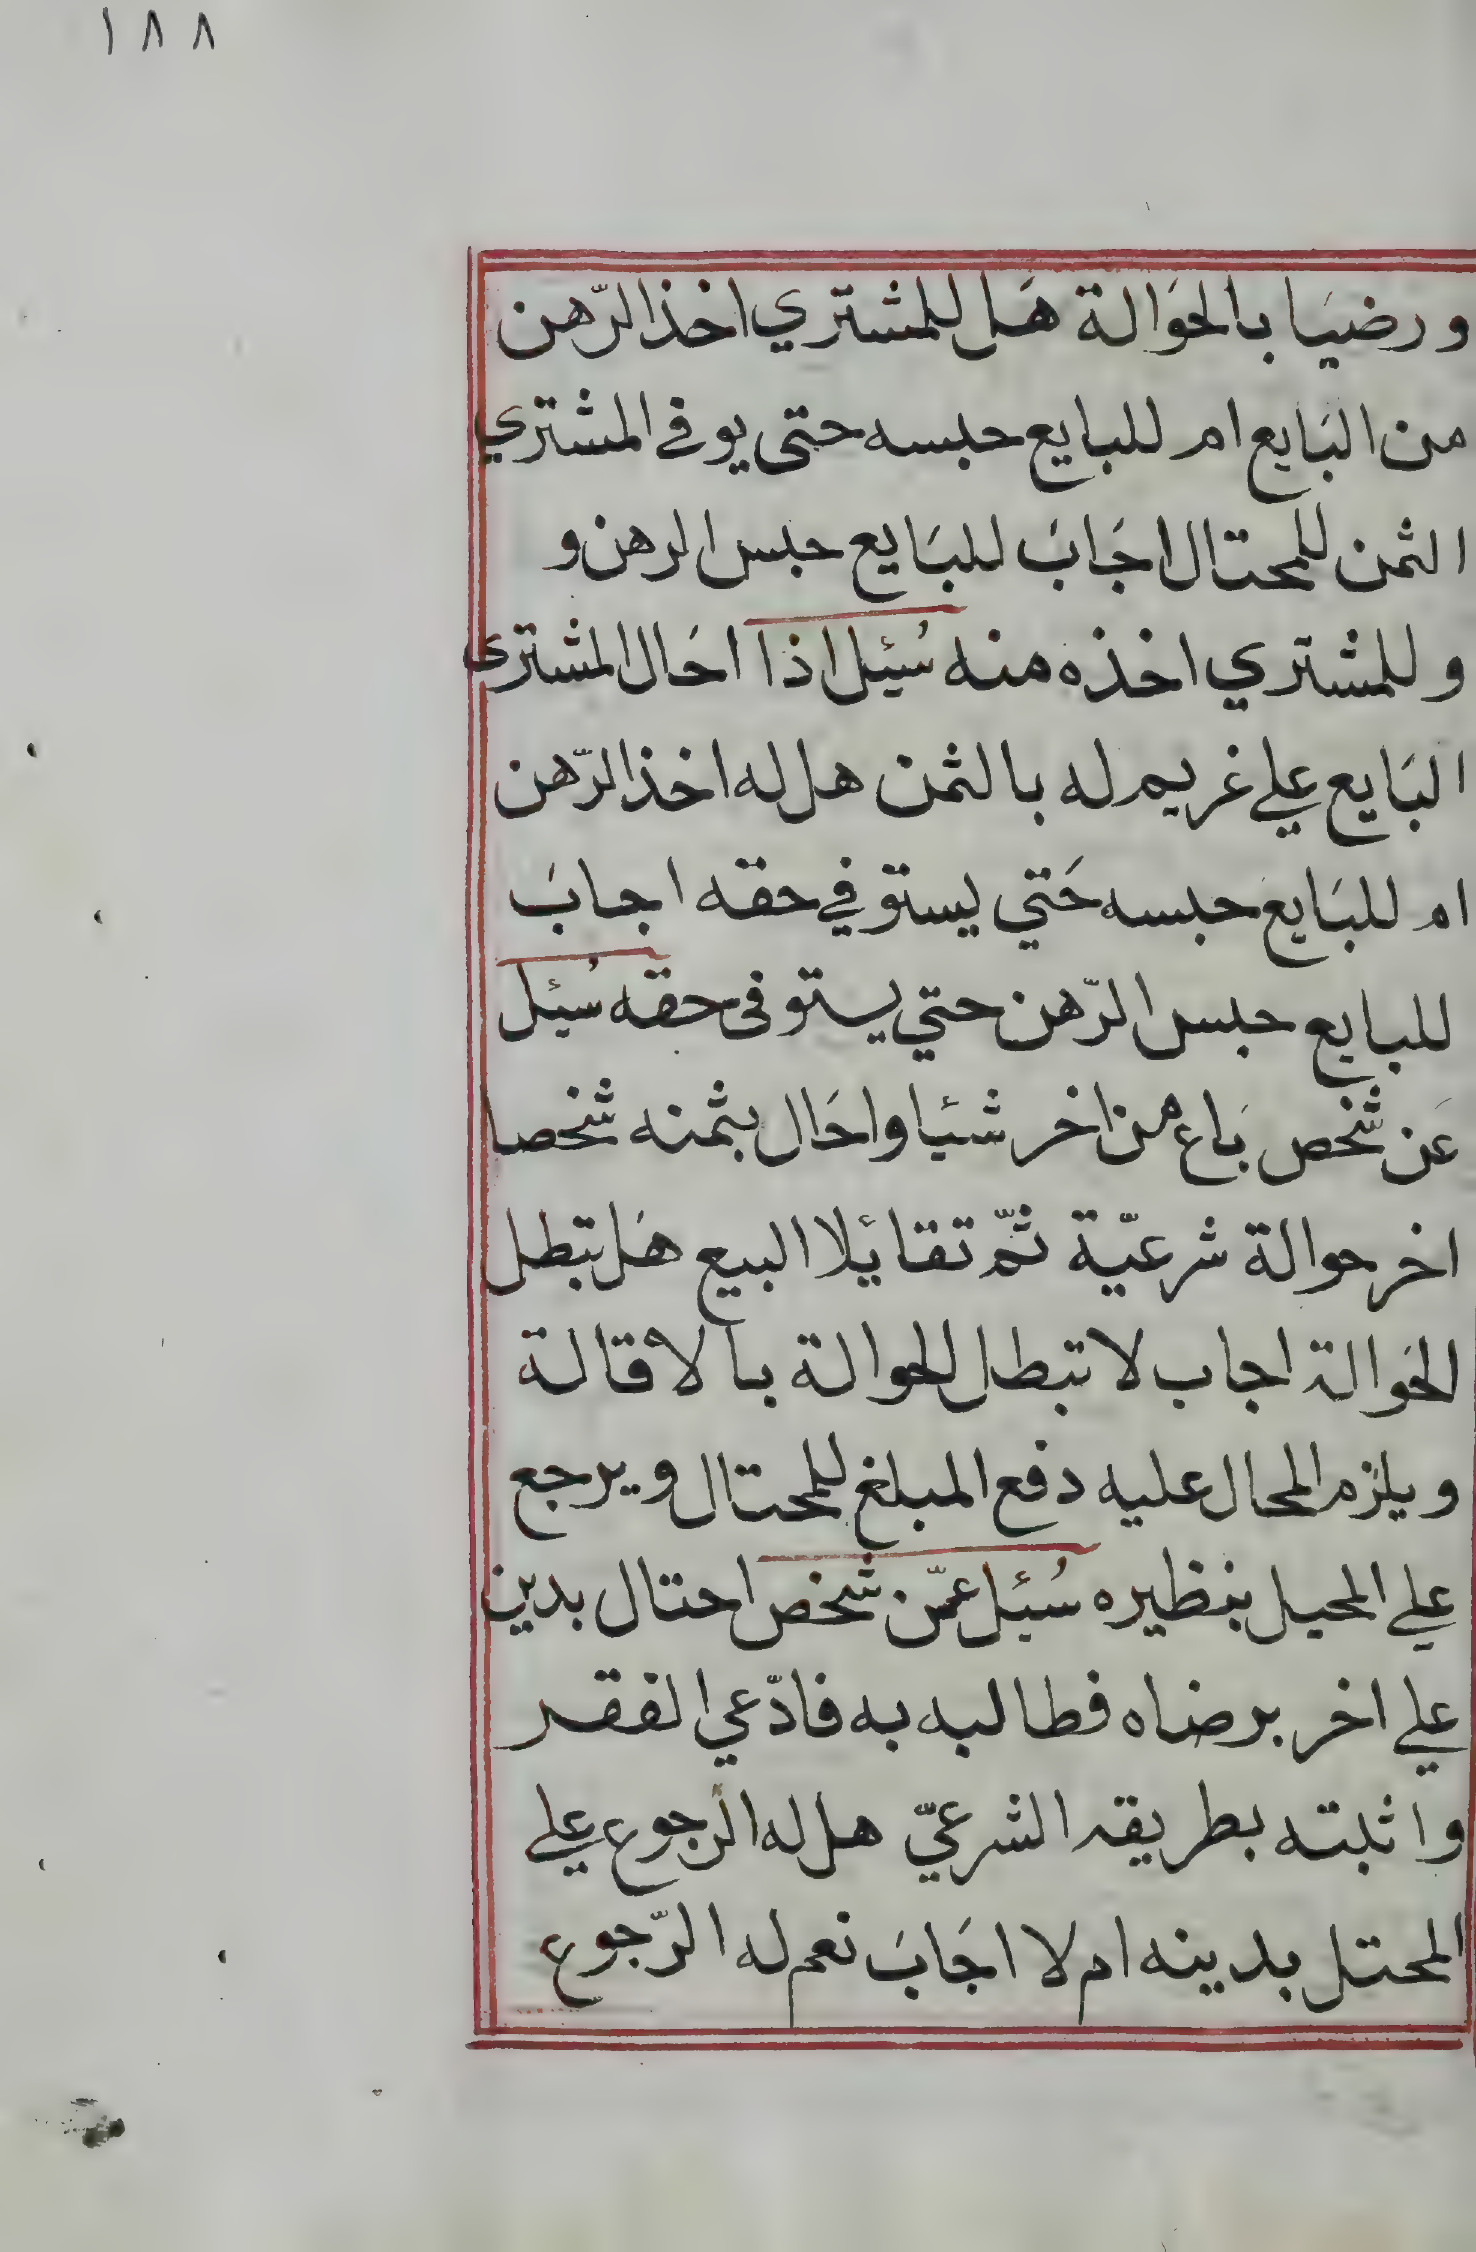 ١٨٨
ورضيَا بالحَوَالة هَل للمشتري اخذ الرّهن
من البَايع ام للبايع حبسه حتى يوفى المشتري
الثمن للمحتال اجَابَ للبَايع حبس الرهن و
وللمشتري اخذه منه سُئِل اذا احَال المشترى
البَايع علي غريم له بالثمن هل له اخذ الرّهن
ام للبَايع حبسه حَتي يستوفي حقه اجابَ
للبايع حبس الرّهن حتي يستوفى حقه سُئِل
عَن شخص بَاع من اخر شئيا واحَال بثمنه شخصا
اخر حوالة شرعيّة ثمّ تقائيلا البيع هَل تبطل
الحَوالة اجاب لا تبطل الحوالة بالاقالة
ويلزم المحال عليه دفع المبلغ للمحتال ويرجع
علي المحيل بنظيره سُئِل عمّن شخص احتال بدين
علي اخر برضاه فطالبه به فادّعي الفقر
واثبته بطريقه الشرعيّ هل له الرجوع علي
المحتل بدينه ام لا اجَابَ نعم له الرّجوع